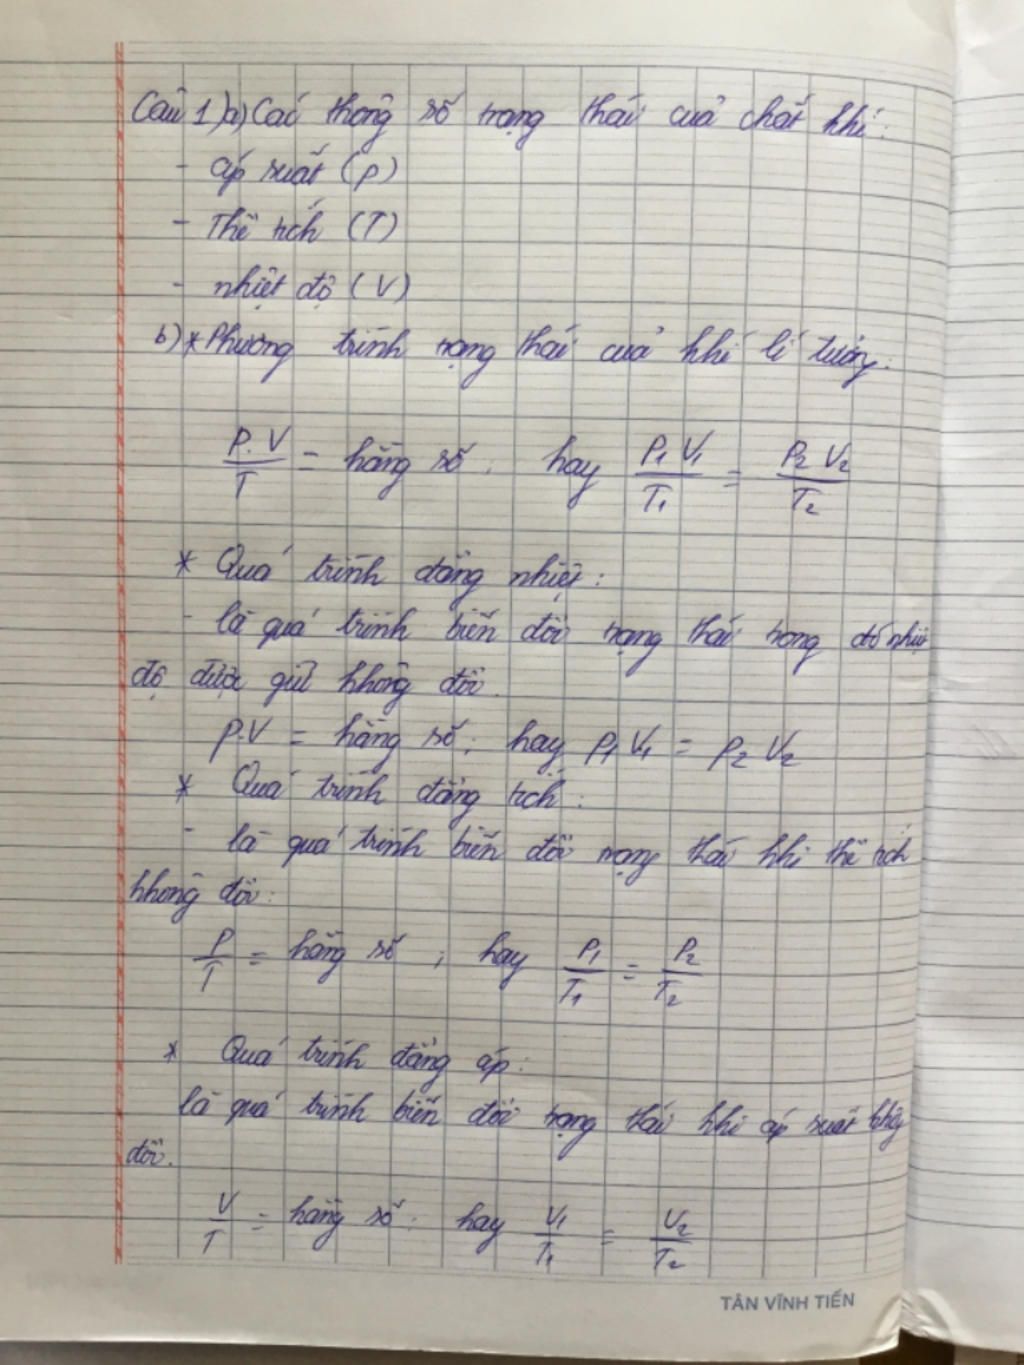 Câu 1) a) Các thông số trạng thái của chất khí:
- áp suất (p)
- Thể tích (T)
- nhiệt độ (V)
b) * Phương trình trạng thái của khí lí tưởng:
P.V/T = hằng số; hay P₁V₁/T₁ = P₂V₂/T₂
* Quá trình đẳng nhiệt:
- là quá trình biến đổi trạng thái trong đó nhiệt
độ được giữ không đổi.
p.V = hằng số; hay p₁V₁ = p₂V₂
* Quá trình đẳng tích:
- là quá trình biến đổi trạng thái khi thể tích
không đổi:
P/T = hằng số; hay P₁/T₁ = P₂/T₂
* Quá trình đẳng áp:
là quá trình biến đổi trạng thái khi áp suất không
đổi.
V/T = hằng số; hay V₁/T₁ = V₂/T₂
TÂN VĨNH TIẾN